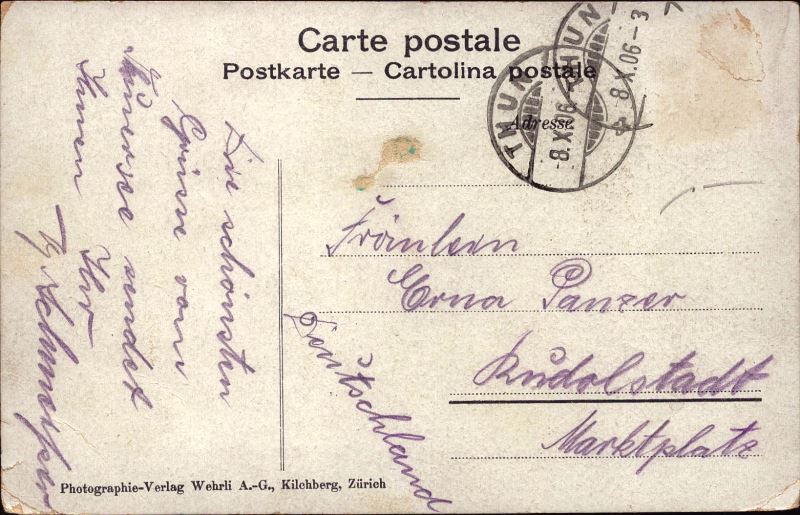 Carte postale
Postkarte — Cartolina postale
Adresse
THUN
8.X.06.-3
THUN
8.X.06
Die schönsten
Grüsse vom
Thunersee sendet
Ihnen Ihr
Fräulein
Erna Panzer
Rudolstadt
Marktplatz
Deutschland
Photographie-Verlag Wehrli A.-G., Kilchberg, Zürich